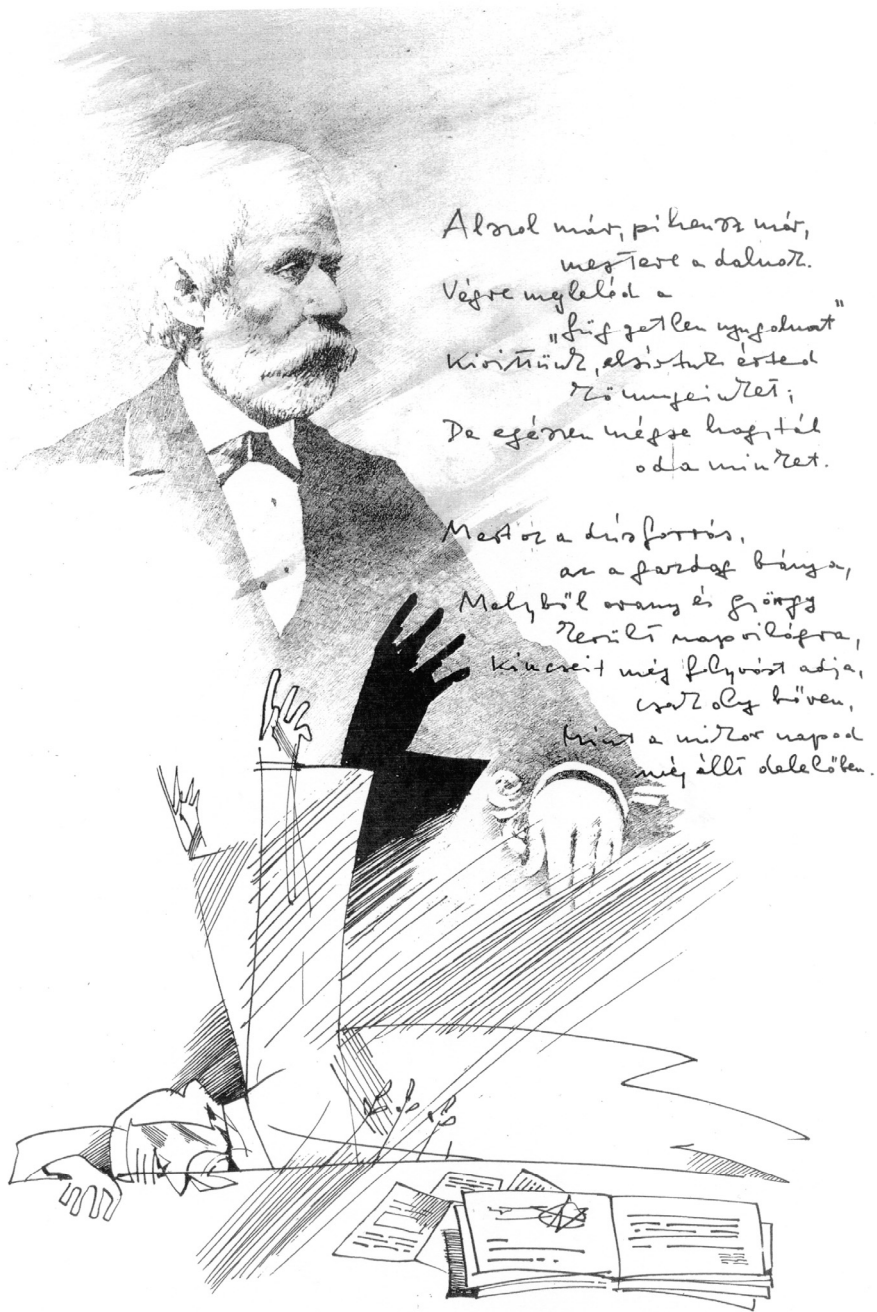 Alszol már, pihensz már,
mestere a dalnak.
Végre megleléd a
„független nyugalmat"
Kivittünk, elsírtuk érted
könnyeinket;
De egészen mégse hagytál
oda minket.
Mert az a dús forrás,
az a gazdag bánya,
Melyből arany és gyöngy
került napvilágra,
Kincseit még folyvást adja,
csak oly bőven,
Mint a mikor napod
még állt delelőben.